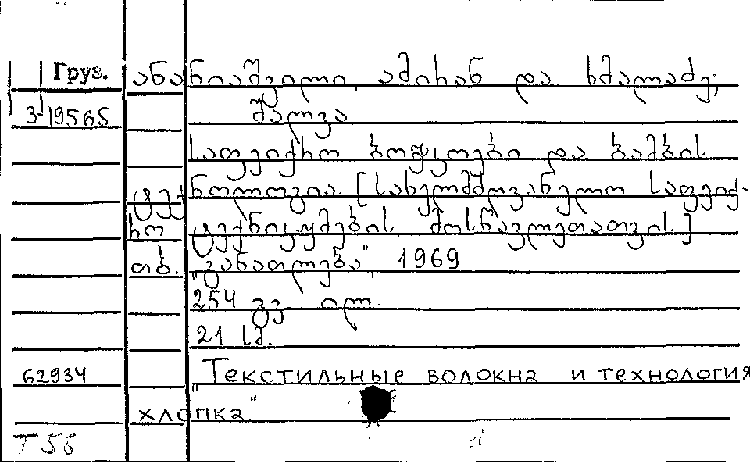 Груз. ანანიაშვილი, ამირან და ხმალაძე,
3-19565 შალვა
საფეიქრო ბოჭკოები და ბამბის
ტექნოლოგია. [სახელმძღვანელო საფეიქ-
რო ტექნიკუმების მოსწავლეთათვის]
თბ. "განათლება", 1969
254 გვ. ილ.
21 სმ.
62934 "Текстильные волокна и технология
хлопка"
Т 56